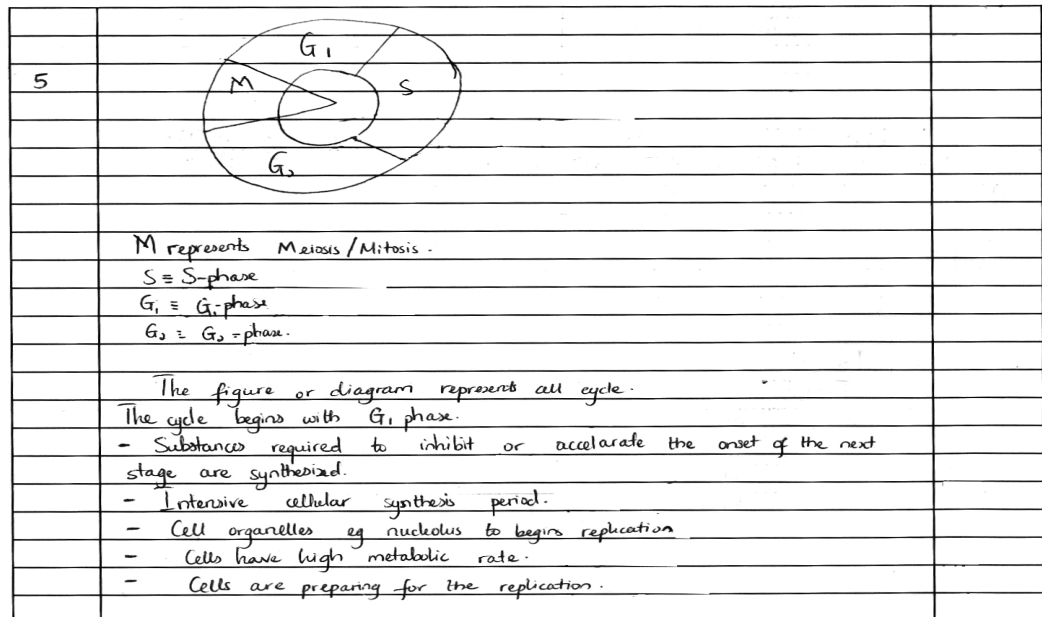 G1
5
M
S
G2
M represents Meiosis/Mitosis.
S ≡ S-phase
G1 ≡ G1-phase
G2 ≡ G2-phase.
The figure or diagram represents all cycle.
The cycle begins with G1 phase.
- Substances required to inhibit or accelarate the onset of the next
stage are synthesized.
- Intensive cellular synthesis period.
- Cell organelles eg nucleolus to begins replication
- Cells have high metabolic rate.
- Cells are preparing for the replication.